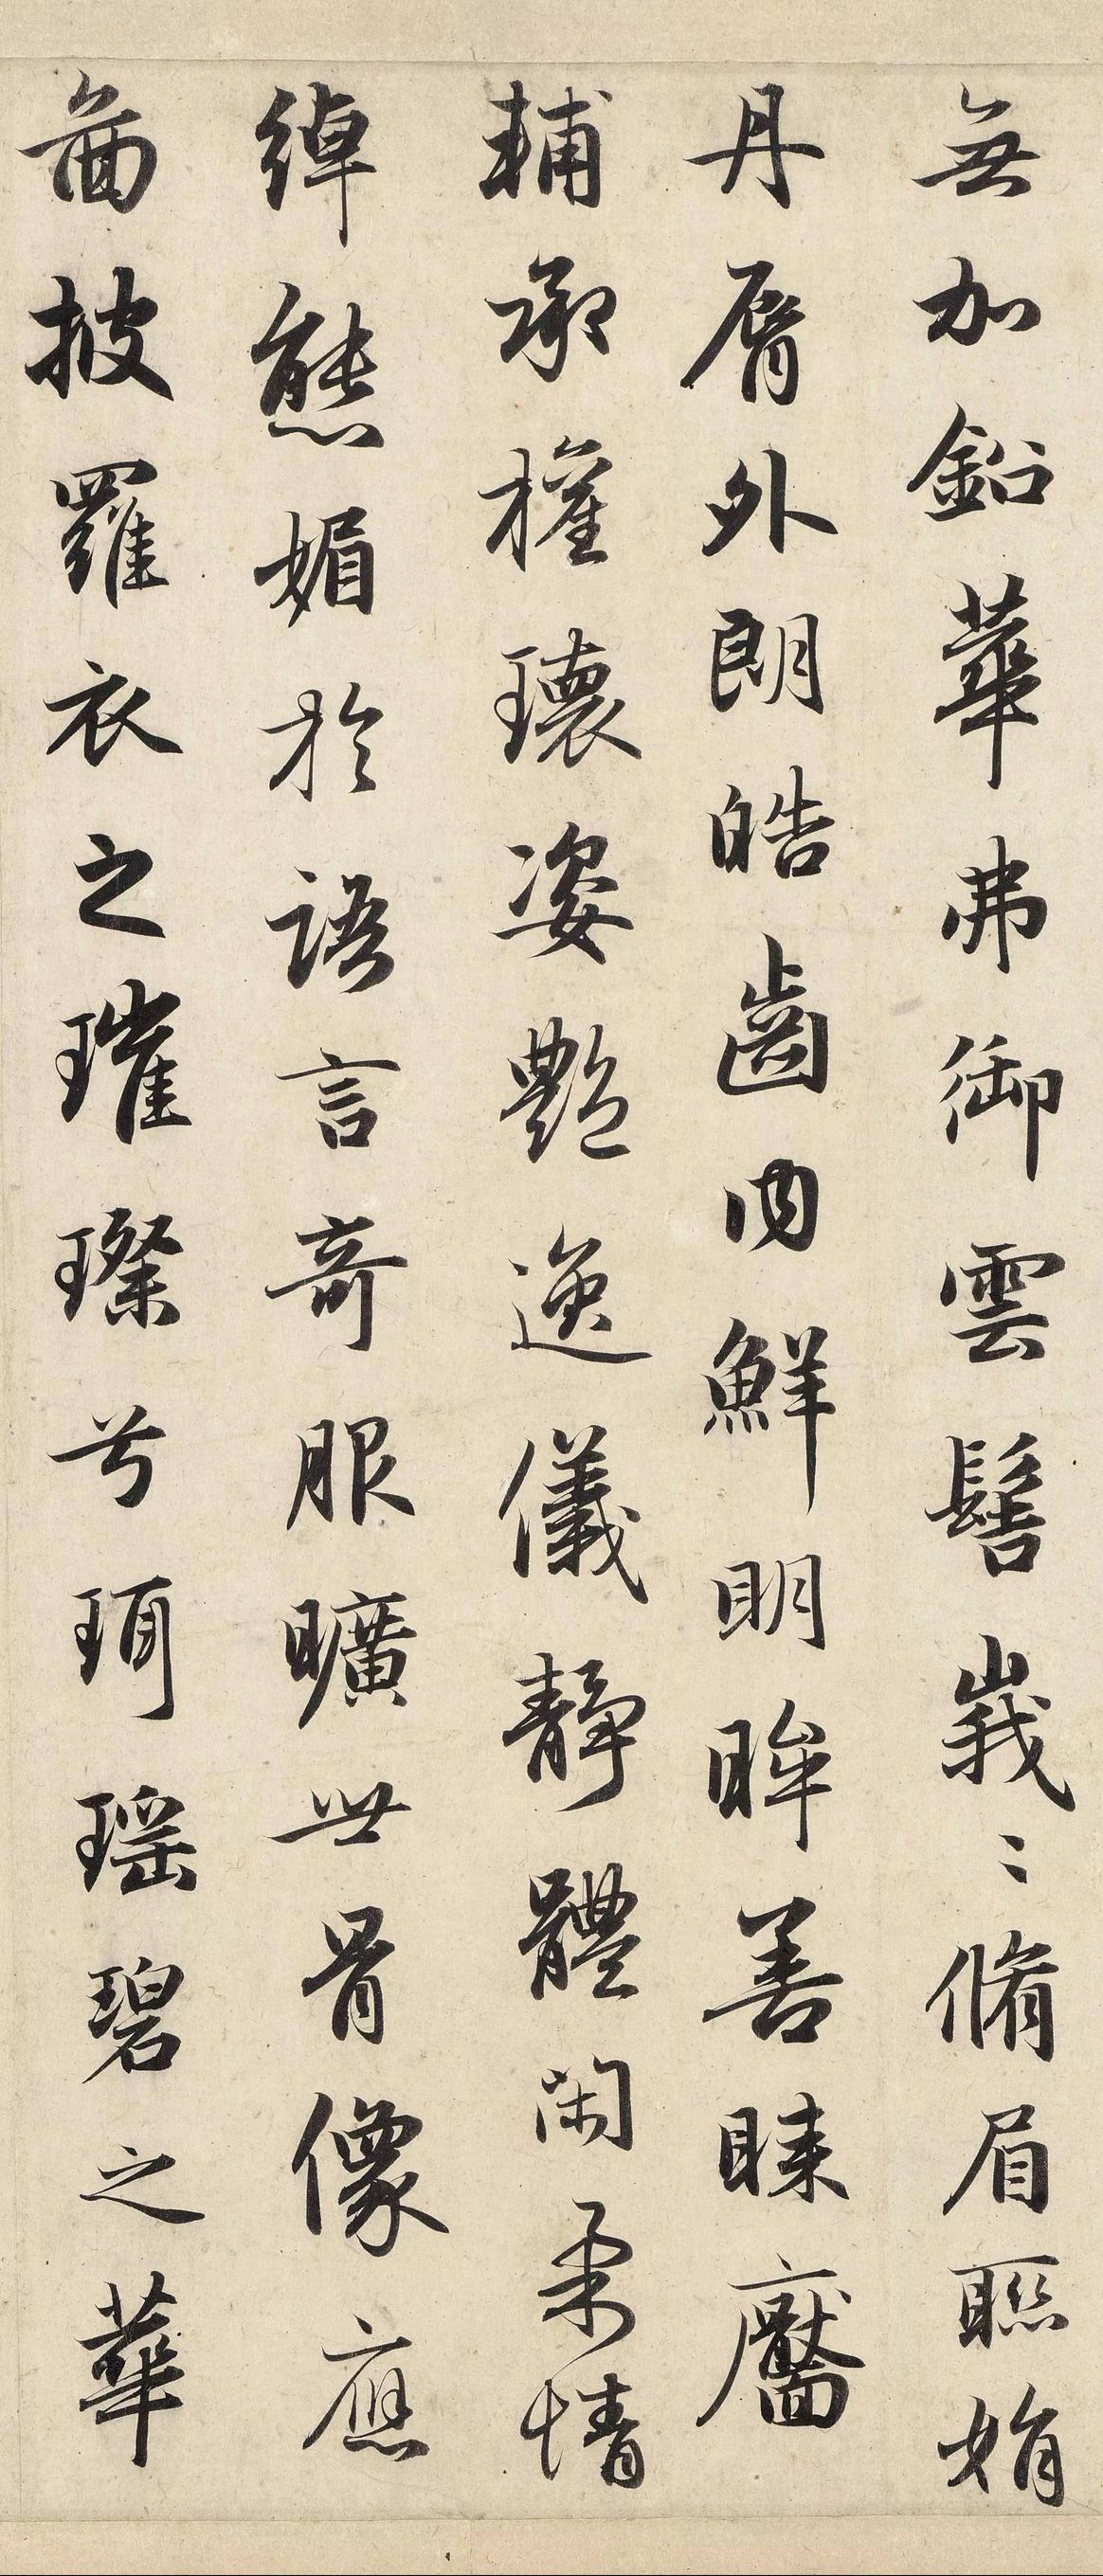 無加鉛華弗御雲髻峩〻脩眉聯娟
丹脣外朗皓齒内鮮明眸善睞靨
輔承權瓌姿艶逸儀靜體閑柔情
綽態媚於語言奇服曠世骨像應
啚披羅衣之璀璨兮珥瑶碧之華